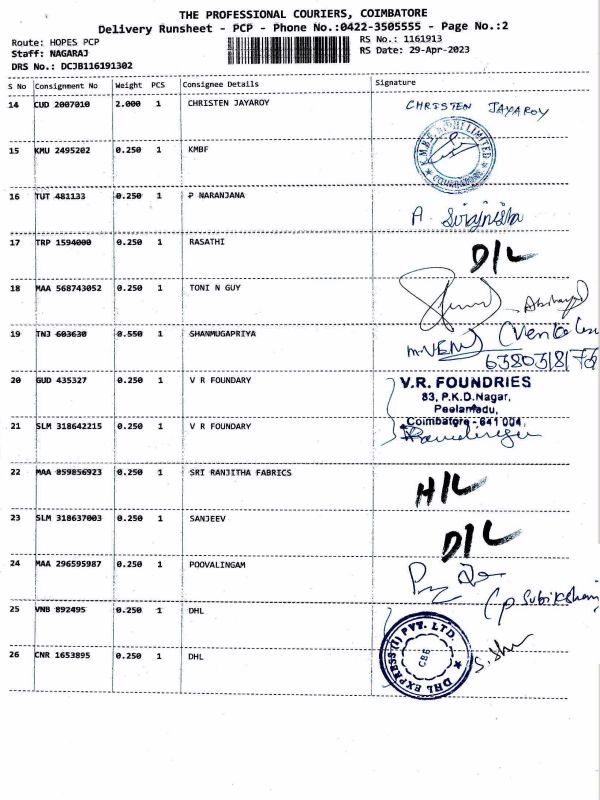 THE PROFESSIONAL COURIERS, COIMBATORE
Delivery Runsheet - PCP - Phone No.:0422-3505555 - Page No.:2
Route: HOPES PCP
RS No.: 1161913
Staff: NAGARAJ
RS Date: 29-Apr-2023
DRS No.: DCJB116191302
S No Consignment No Weight PCS Consignee Details Signature
14 CUD 2007010 2.000 1 CHRISTEN JAYAROY CHRISTEN JAYAROY
15 KMU 2495202 0.250 1 KMBF
COIMBATORE
16 TUT 481133 0.250 1 P NARANJANA A.
17 TRP 1594000 0.250 1 RASATHI D/L
18 MAA 568743052 0.250 1 TONI N GUY
19 TNJ 603630 0.550 1 SHANMUGAPRIYA
20 GUD 435327 0.250 1 V R FOUNDARY V.R. FOUNDRIES
83, P.K.D.Nagar,
Peelamedu,
21 SLM 318642215 0.250 1 V R FOUNDARY Coimbatore - 641 004.
22 MAA 859856923 0.250 1 SRI RANJITHA FABRICS H/L
23 SLM 318637003 0.250 1 SANJEEV D/L
24 MAA 296595987 0.250 1 POOVALINGAM
25 VNB 892495 0.250 1 DHL
DHL EXPRESS (I) PVT. LTD.
26 CNR 1653895 0.250 1 DHL